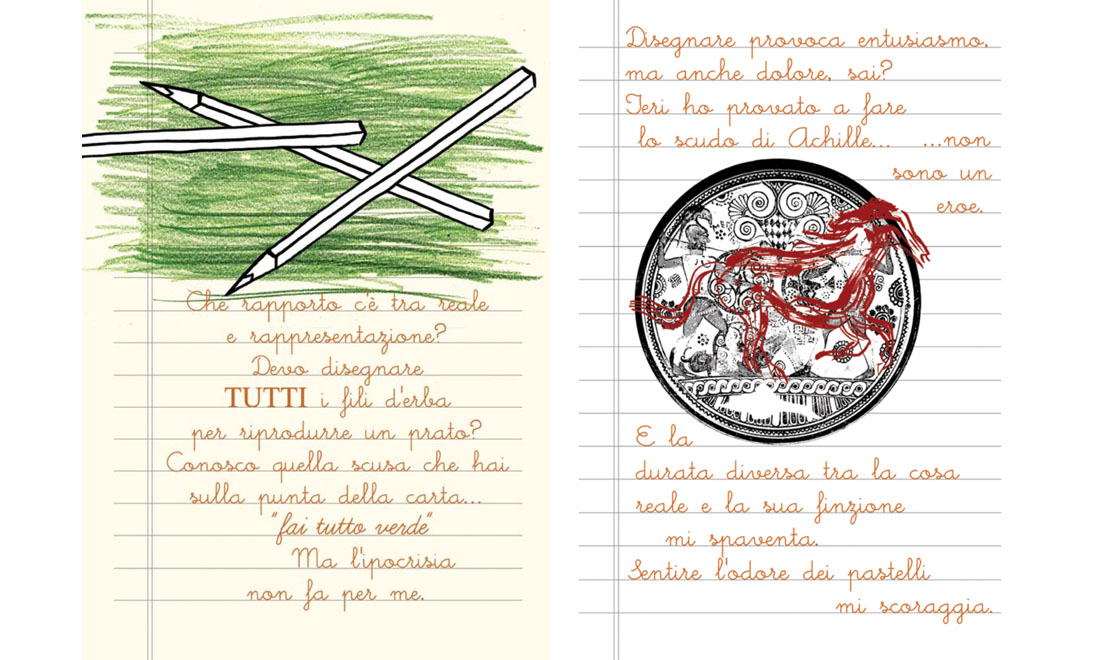 Che rapporto c'è tra reale
e rappresentazione?
Devo disegnare
TUTTI i fili d'erba
per riprodurre un prato?
Conosco quella scusa che hai
sulla punta della carta...
"fai tutto verde"
Ma l'ipocrisia
non fa per me.
Disegnare provoca entusiasmo,
ma anche dolore, sai?
Ieri ho provato a fare
lo scudo di Achille... ...non
sono un
eroe.
E la
durata diversa tra la cosa
reale e la sua finzione
mi spaventa.
Sentire l'odore dei pastelli
mi scoraggia.